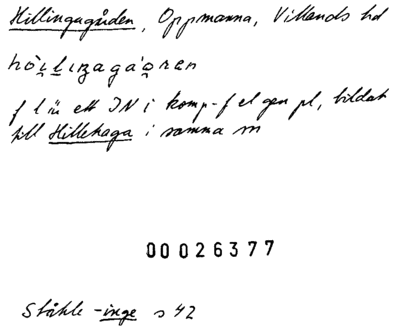 Hillingagården, Oppmanna, Villands hd
f l är ett IN i komp-f el gen pl, bildat
till Hillehaga i samma sn
00026377
Ståhle -inge s 42